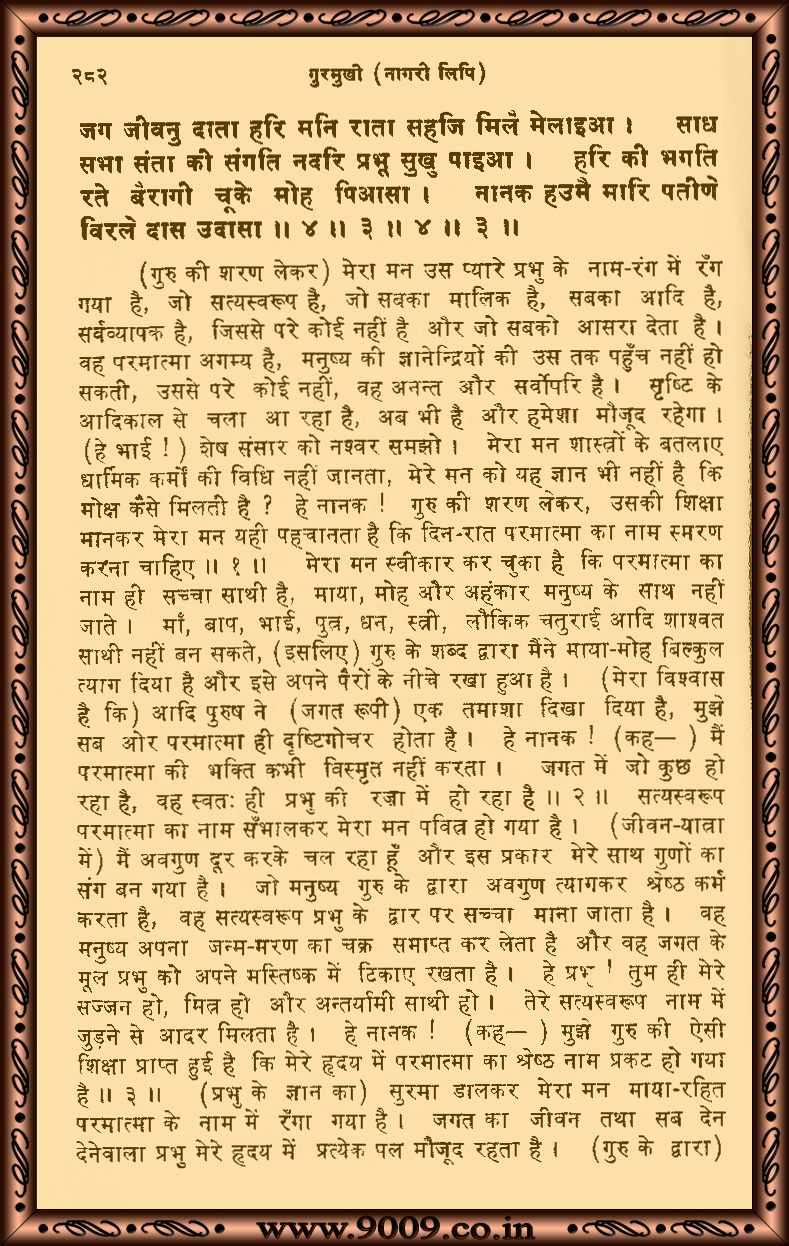 २८२ गुरमुखी (नागरी लिपि)
जग जीवनु दाता हरि मनि राता सहजि मिलै मेलाइआ । साध
सभा संता की संगति नदरि प्रभू सुखु पाइआ । हरि की भगति
रते बैरागी चूके मोह पिआसा । नानक हउमै मारि पतीणे
विरले दास उदासा ॥ ४ ॥ ३ ॥ ४ ॥ ३ ॥
(गुरु की शरण लेकर) मेरा मन उस प्यारे प्रभु के नाम-रंग में रँग
गया है, जो सत्यस्वरूप है, जो सबका मालिक है, सबका आदि है,
सर्वव्यापक है, जिससे परे कोई नहीं है और जो सबको आसरा देता है ।
वह परमात्मा अगम्य है, मनुष्य की ज्ञानेन्द्रियों की उस तक पहुँच नहीं हो
सकती, उससे परे कोई नहीं, वह अनन्त और सर्वोपरि है । सृष्टि के
आदिकाल से चला आ रहा है, अब भी है और हमेशा मौजूद रहेगा ।
(हे भाई ! ) शेष संसार को नश्वर समझो । मेरा मन शास्त्रों के बतलाए
धार्मिक कर्मों की विधि नहीं जानता, मेरे मन को यह ज्ञान भी नहीं है कि
मोक्ष कैसे मिलती है ? हे नानक ! गुरु की शरण लेकर, उसकी शिक्षा
मानकर मेरा मन यही पहचानता है कि दिन-रात परमात्मा का नाम स्मरण
करना चाहिए ॥ १ ॥ मेरा मन स्वीकार कर चुका है कि परमात्मा का
नाम ही सच्चा साथी है, माया, मोह और अहंकार मनुष्य के साथ नहीं
जाते । माँ, बाप, भाई, पुत्र, धन, स्त्री, लौकिक चतुराई आदि शाश्वत
साथी नहीं बन सकते, (इसलिए) गुरु के शब्द द्वारा मैंने माया-मोह बिल्कुल
त्याग दिया है और इसे अपने पैरों के नीचे रखा हुआ है । (मेरा विश्वास
है कि) आदि पुरुष ने (जगत रूपी) एक तमाशा दिखा दिया है, मुझे
सब ओर परमात्मा ही दृष्टिगोचर होता है । हे नानक ! (कह— ) मैं
परमात्मा की भक्ति कभी विस्मृत नहीं करता । जगत में जो कुछ हो
रहा है, वह स्वतः ही प्रभु की रज़ा में हो रहा है ॥ २ ॥ सत्यस्वरूप
परमात्मा का नाम सँभालकर मेरा मन पवित्र हो गया है । (जीवन-यात्रा
में) मैं अवगुण दूर करके चल रहा हूँ और इस प्रकार मेरे साथ गुणों का
संग बन गया है । जो मनुष्य गुरु के द्वारा अवगुण त्यागकर श्रेष्ठ कर्म
करता है, वह सत्यस्वरूप प्रभु के द्वार पर सच्चा माना जाता है । वह
मनुष्य अपना जन्म-मरण का चक्र समाप्त कर लेता है और वह जगत के
मूल प्रभु को अपने मस्तिष्क में टिकाए रखता है । हे प्रभु ! तुम ही मेरे
सज्जन हो, मित्र हो और अन्तर्यामी साथी हो । तेरे सत्यस्वरूप नाम में
जुड़ने से आदर मिलता है । हे नानक ! (कह— ) मुझे गुरु की ऐसी
शिक्षा प्राप्त हुई है कि मेरे हृदय में परमात्मा का श्रेष्ठ नाम प्रकट हो गया
है ॥ ३ ॥ (प्रभु के ज्ञान का) सुरमा डालकर मेरा मन माया-रहित
परमात्मा के नाम में रँगा गया है । जगत का जीवन तथा सब देन
देनेवाला प्रभु मेरे हृदय में प्रत्येक पल मौजूद रहता है । (गुरु के द्वारा)
www.9009.co.in